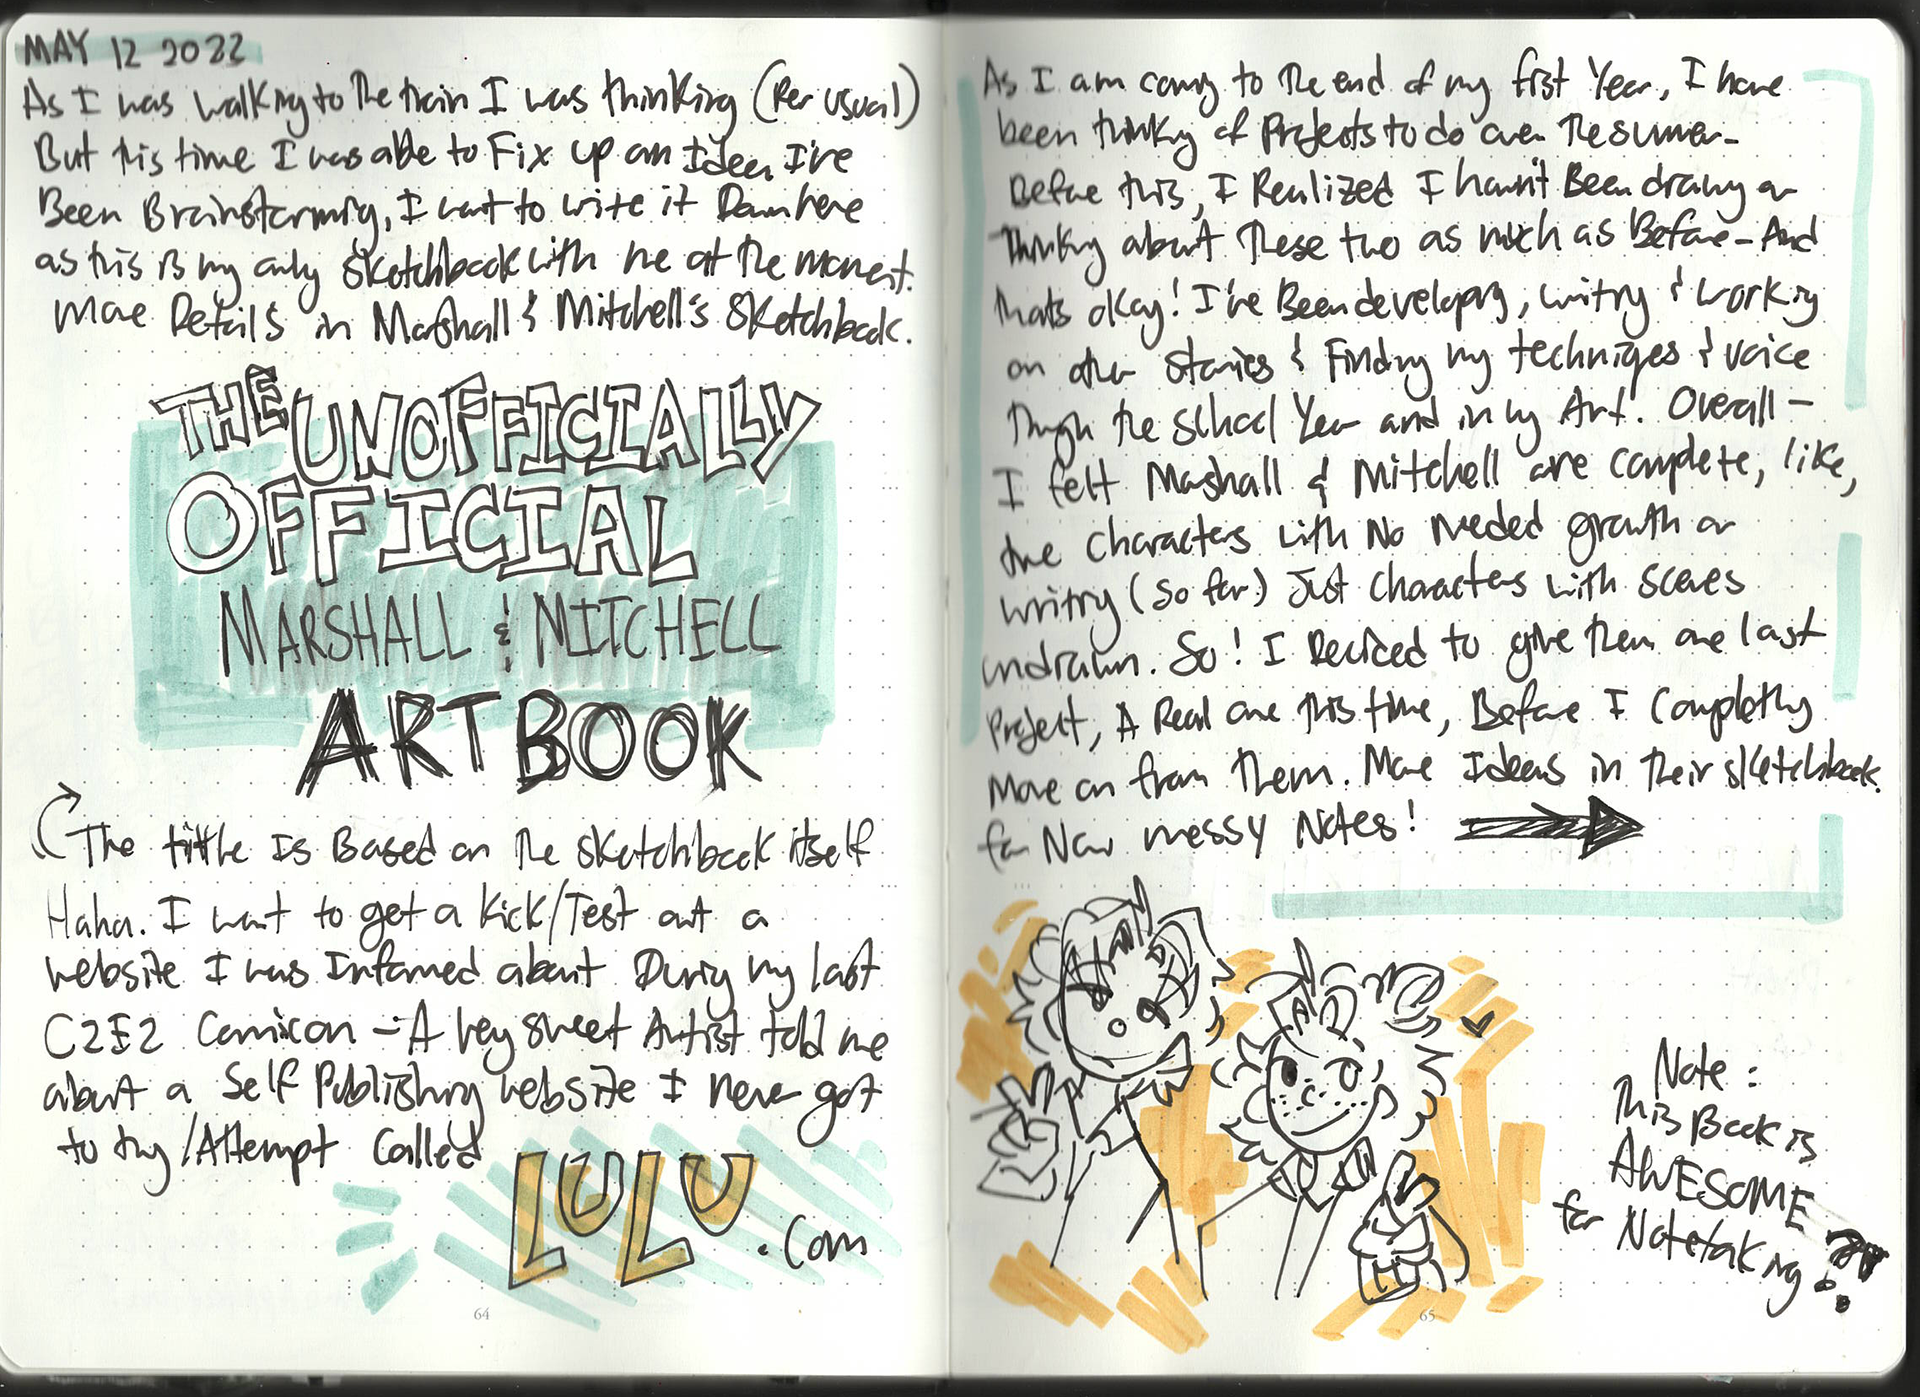 MAY 12 2022
As I was walking to the train I was thinking (Per usual)
But this time I was able to Fix up an Idea I've
Been Brainstorming, I want to write it Down here
as this is my only sketchbook with me at the moment.
More Details in Marshall & Mitchell's Sketchbook.
THE UNOFFICIALLY
OFFICIAL
MARSHALL & MITCHELL
ARTBOOK
The tittle Is Based on the sketchbook itself
Haha. I want to get a kick/Test out a
website I was Informed about During my last
C2E2 Comicon - A very sweet Artist told me
about a Self Publishing website I never got
to try/Attempt Called
LULU.com
64
As I am coming to the end of my first Year, I have
been thinking of Projects to do over the summer-
Before this, I Realized I havn't Been drawing or
thinking about these two as much as Before - And
thats okay! I've Been developing, writing & working
on other stories & Finding my techniques & voice
through the school Year and in my Art. Overall -
I felt Marshall & Mitchell are complete, like,
the characters with No needed growth or
writing (so far) Just characters with scenes
undrawn. So! I Decided to give them one last
Project, A Real one this time, Before I Completly
Move on from them. More Ideas in their sketchbook.
for Now messy Notes!
Note:
This Book is
AWESOME
for Notetaking!
65